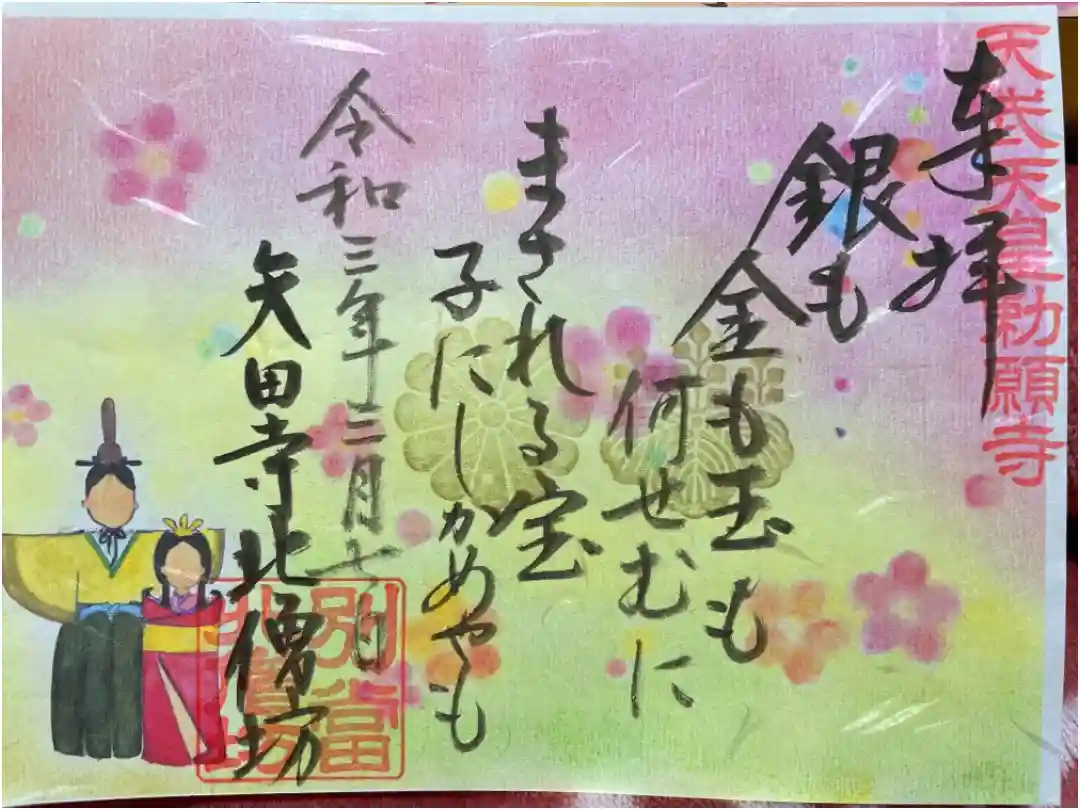 天武天皇勅願寺
奉拝
銀も
金も玉も
何せむに
まされる宝
子にしかめやも
令和三年三月七日
矢田寺北僧坊
別当
北僧坊